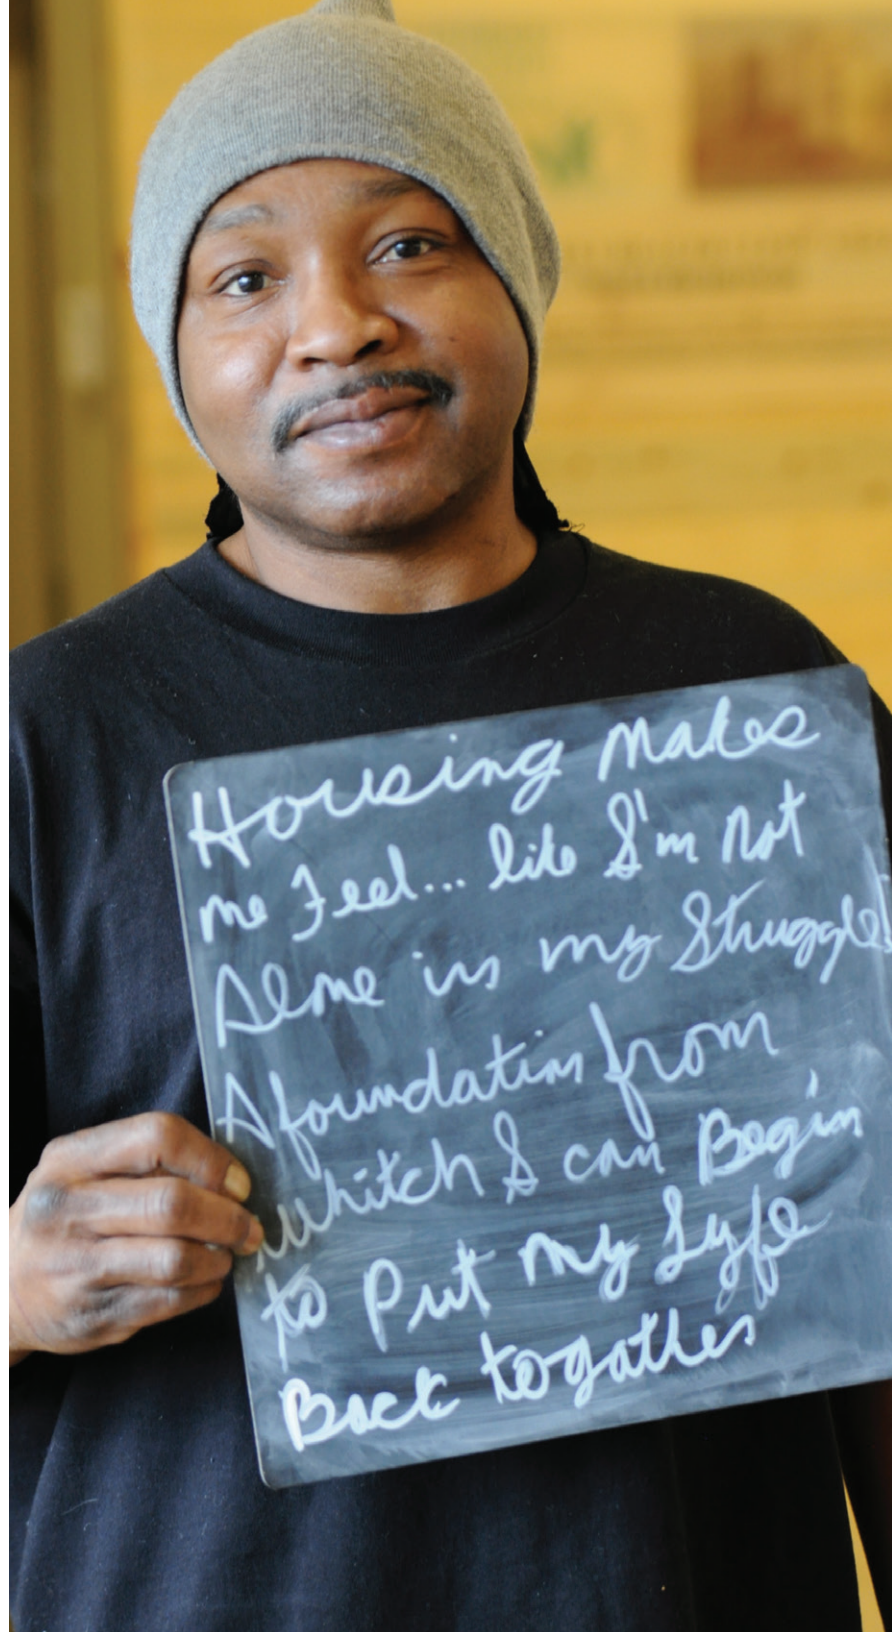 Housing Makes
me Feel... like I'm Not
Alone in my Struggle!
A foundation from
whitch I can Begin
to Put my Lyfe
Back togather